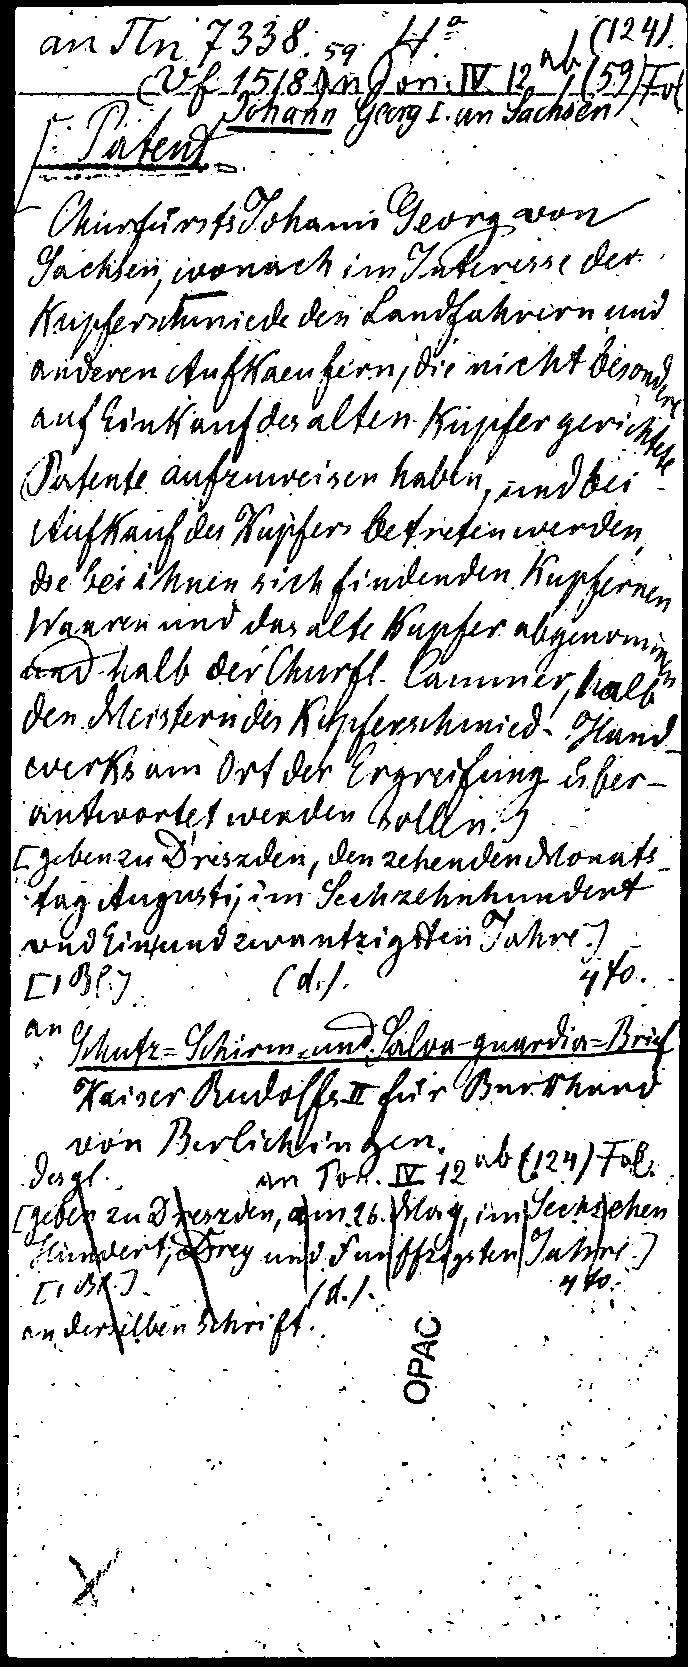 an Tn 7338. 59 H.ᵃ (124).
(Vf 1518) an Ton. IV 12 ab (59) Fol
Johann Georg I. an Sachsen
[Patent
Churfürsts Johann Georg von
Sachsen, wonach im Interesse der
Kupferschmiede den Landfahrern und
anderen Aufkaeufern, die nicht besondere
auf Einkauf des alten Kupfer gerichtete
Patente aufzuweisen haben, und bei
Aufkauf des Kupfers betreten werden,
die bei ihnen sich findenden Kupfernen
Waaren und das alte Kupfer abgenommen
und halb der Churfl. Cammer, halb
den Meistern des Kupferschmied-Hand-
werks am Ort der Ergreifung über-
antwortet werden sollen.]
[geben zu Dreszden, den zehenden Monats-
tag Augusti, im Sechzehnhundert
und Ein und zwantzigsten Jahre.]
[1 Bl.] (d.). 4to.
an Schutz=Schirm- und Salva-guardia=Brief
Kaiser Rudolfs II für Burkhard
von Berlichingen.
desgl. an Ton. IV 12 ab (124) Fol.
[geben zu Dreszden, am 26. May, im Sechzehen
Hundert, Drey und Funffzigsten Jahre.]
[1 Bl.] (d.). 4to.
an derselben Schrift.
OPAC